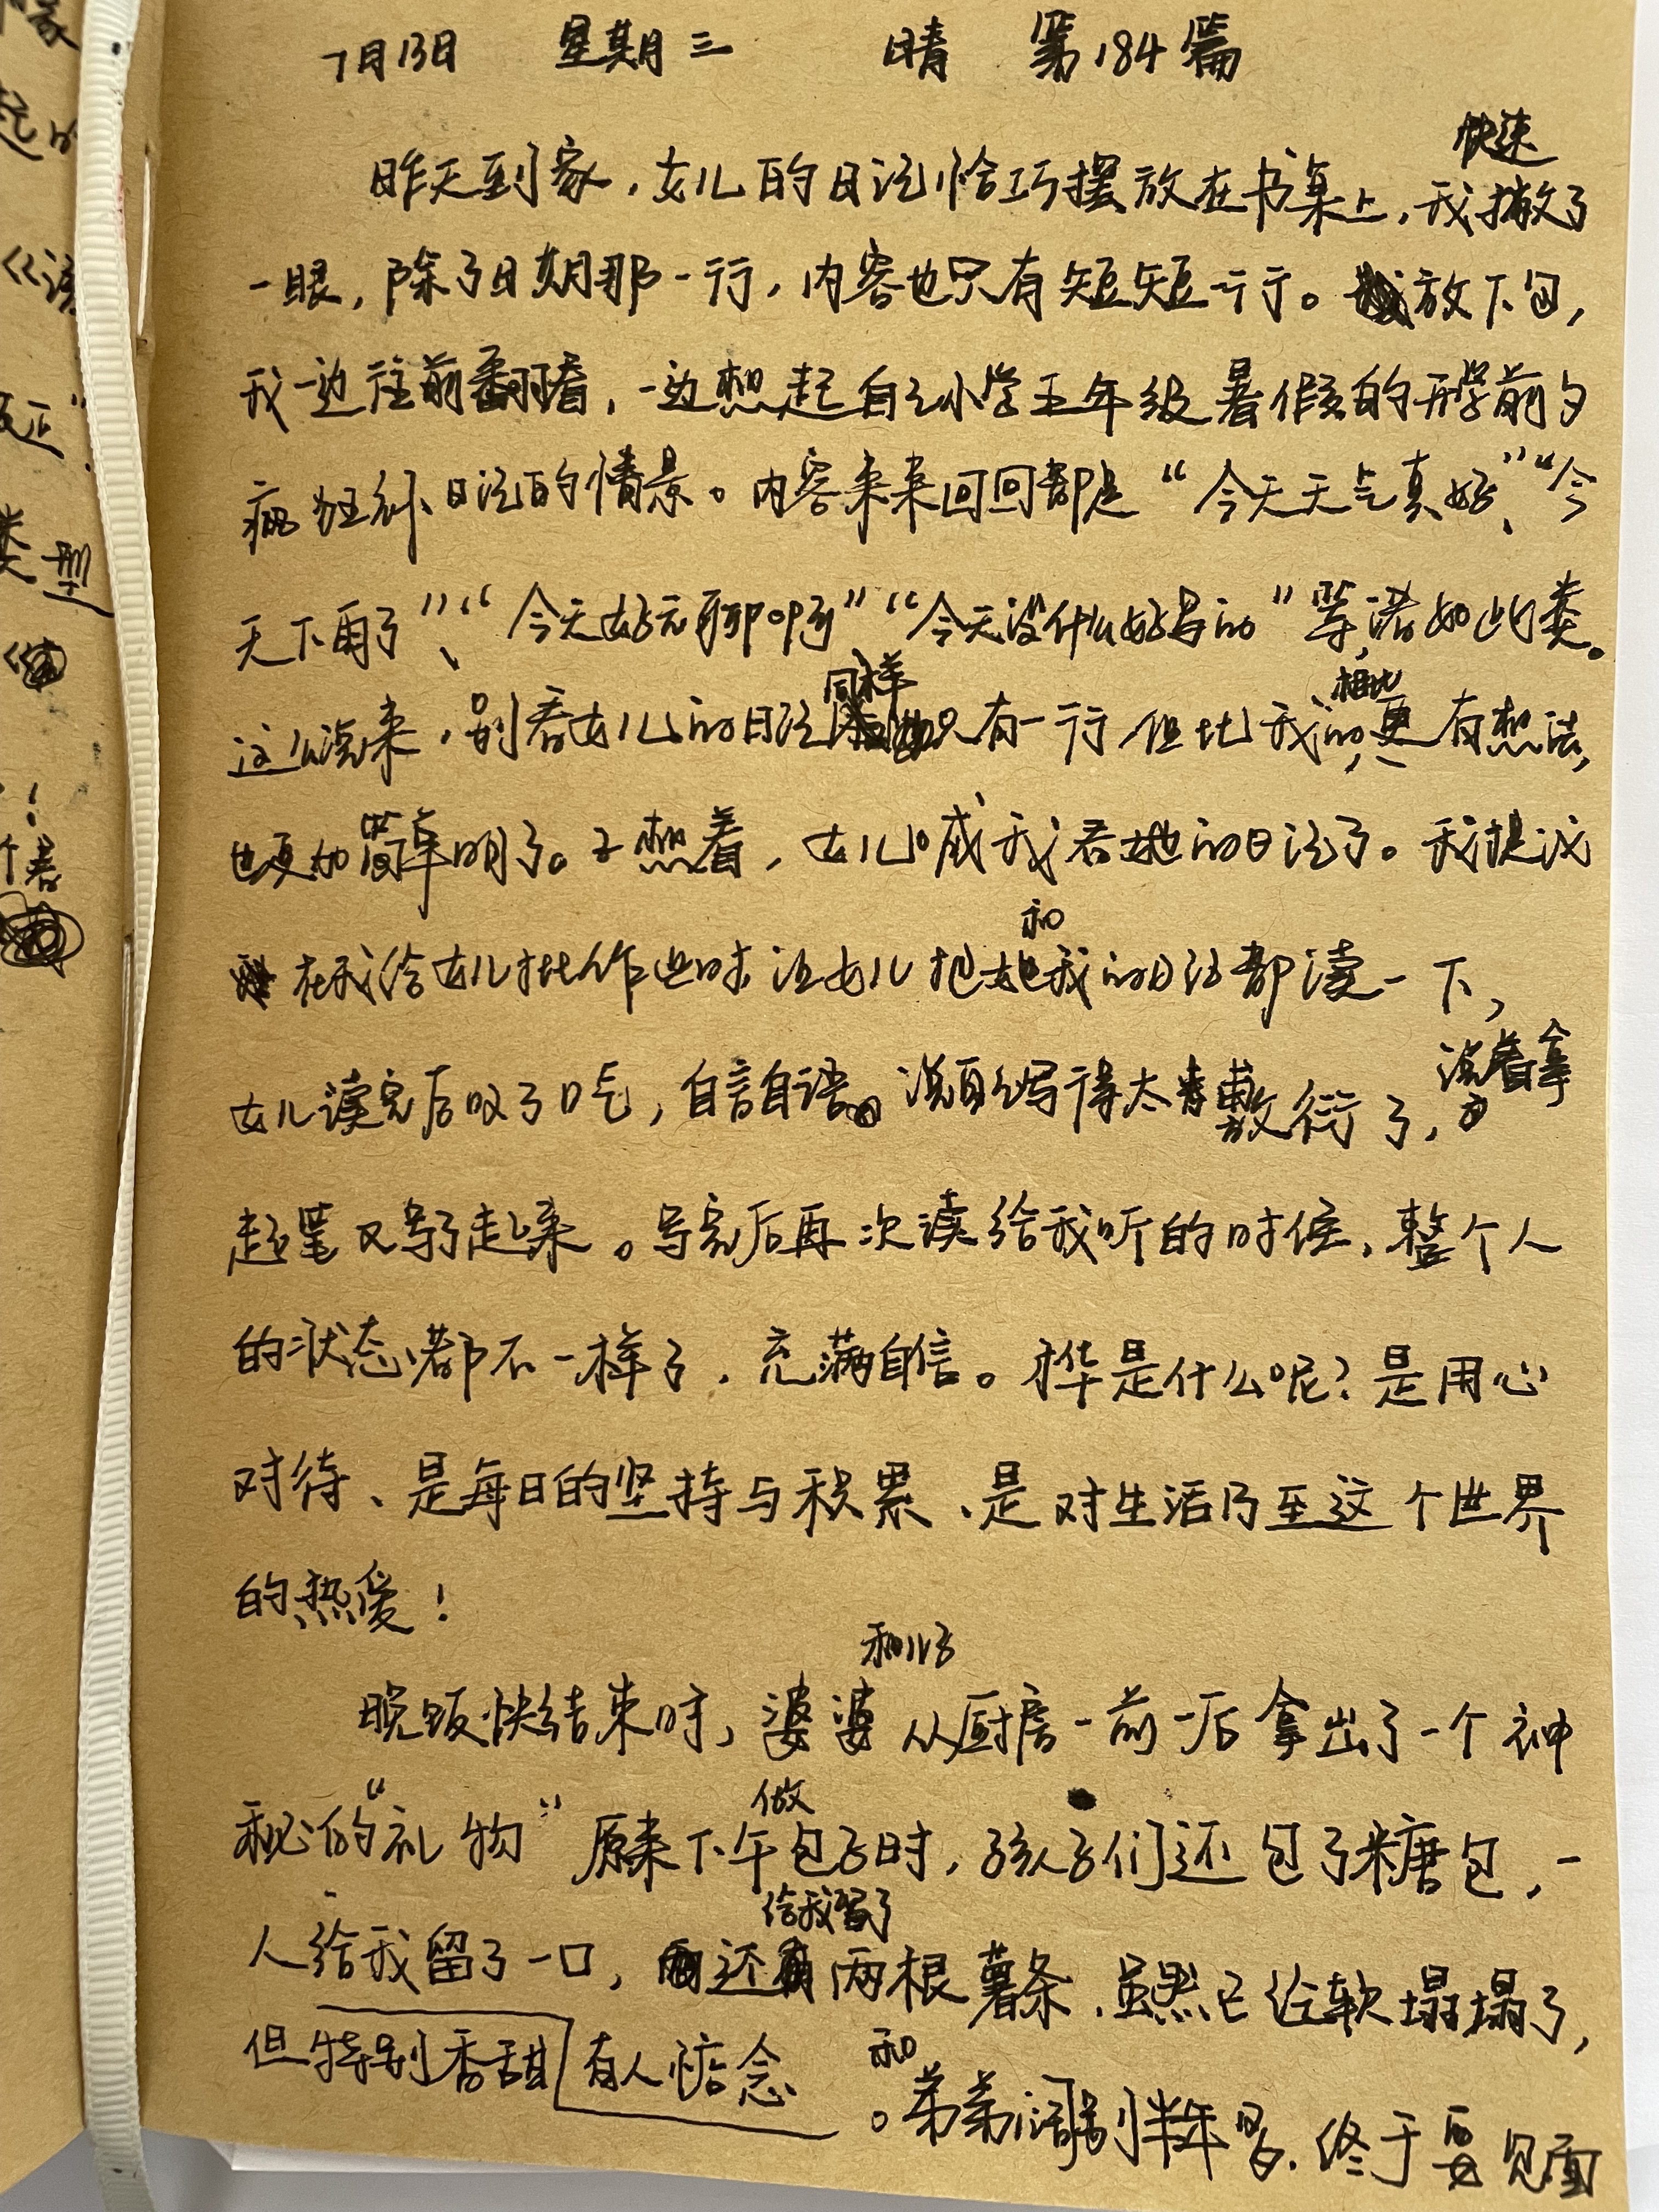 7月13日 星期三 晴 第184篇
昨天到家，女儿的日记恰巧摆放在书桌上，我快速撇了
一眼，除了日期那一行，内容也只有短短一行。放下包，
我一边往前翻看，一边想起自己小学五年级暑假的开学前夕
疯狂补日记的情景。内容来来回回都是“今天天气真好”、“今
天下雨了”、“今天好无聊啊”“今天没什么好写的”等诸如此类。
这么说来，别看女儿的日记同样只有一行，但比我的相比更有想法，
也更加简单明了。正想着，女儿喊我看她的日记了。我提议
在我给女儿批作业时让女儿把她和我的日记都读一下，
女儿读完后叹了口气，自言自语。说自己写得太敷衍了，说着拿
起笔又写了起来。写完后再次读给我听的时候，整个人
的状态都不一样了，充满自信。才华是什么呢？是用心
对待、是每日的坚持与积累、是对生活乃至这个世界
的热爱！
晚饭快结束时，婆婆和儿子从厨房一前一后拿出了一个神
秘的“礼物”原来下午做包子时，孩子们还包了糖包，一
人给我留了一口，还给我留了两根薯条，虽然已经软塌塌了，
但特别香甜 有人惦念。和弟弟阔别半年多，终于要见面